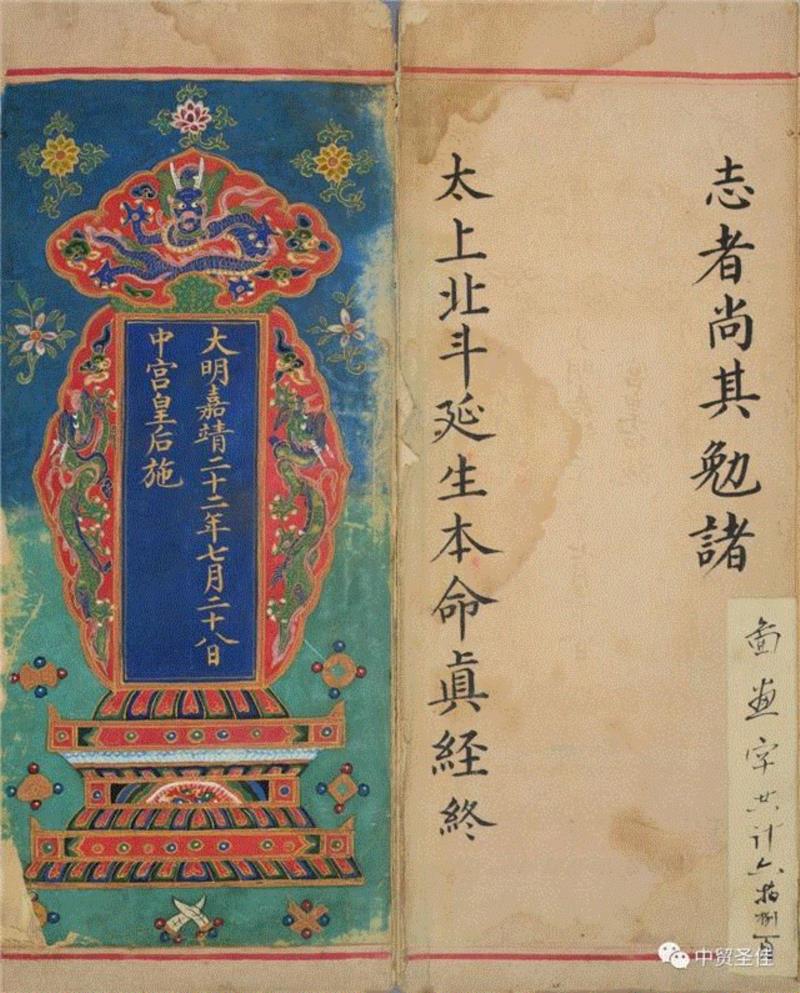 志者尚其勉諸
畫字共计六拾捌頁
太上北斗延生本命眞経終
大明嘉靖二十二年七月二十八日
中宮皇后施
中贸圣佳